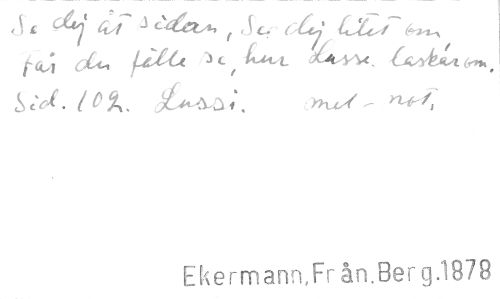 Se dig åt sidan, Se dig litet om
Får du fälle se, hur Lasse laskar om.
Sid. 102. Lussi. mel-not.
Ekermann, Från. Berg. 1878